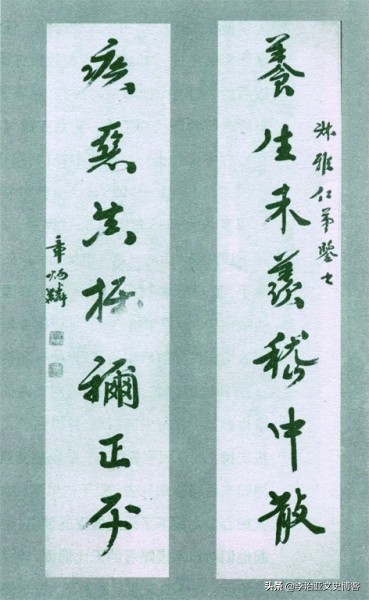 養生未羨嵇中散
叔雅仁弟鑒之
疾惡真推禰正平
章炳麟
头条 @李治亚文史博客